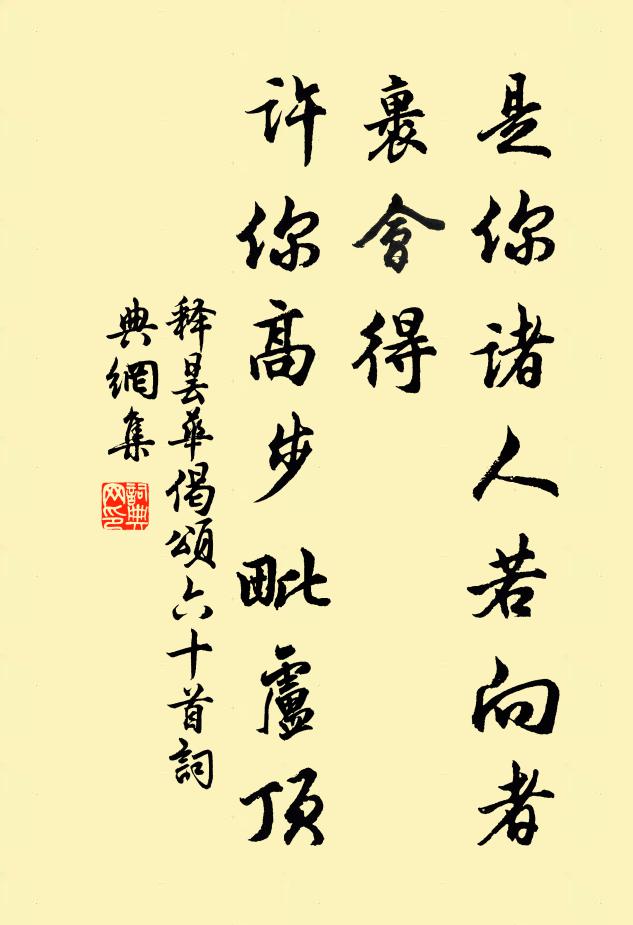 是你诸人若向者
裹會得
许你高步毗盧顶
释昙华偈颂六十首詞
典網集
詞典网印